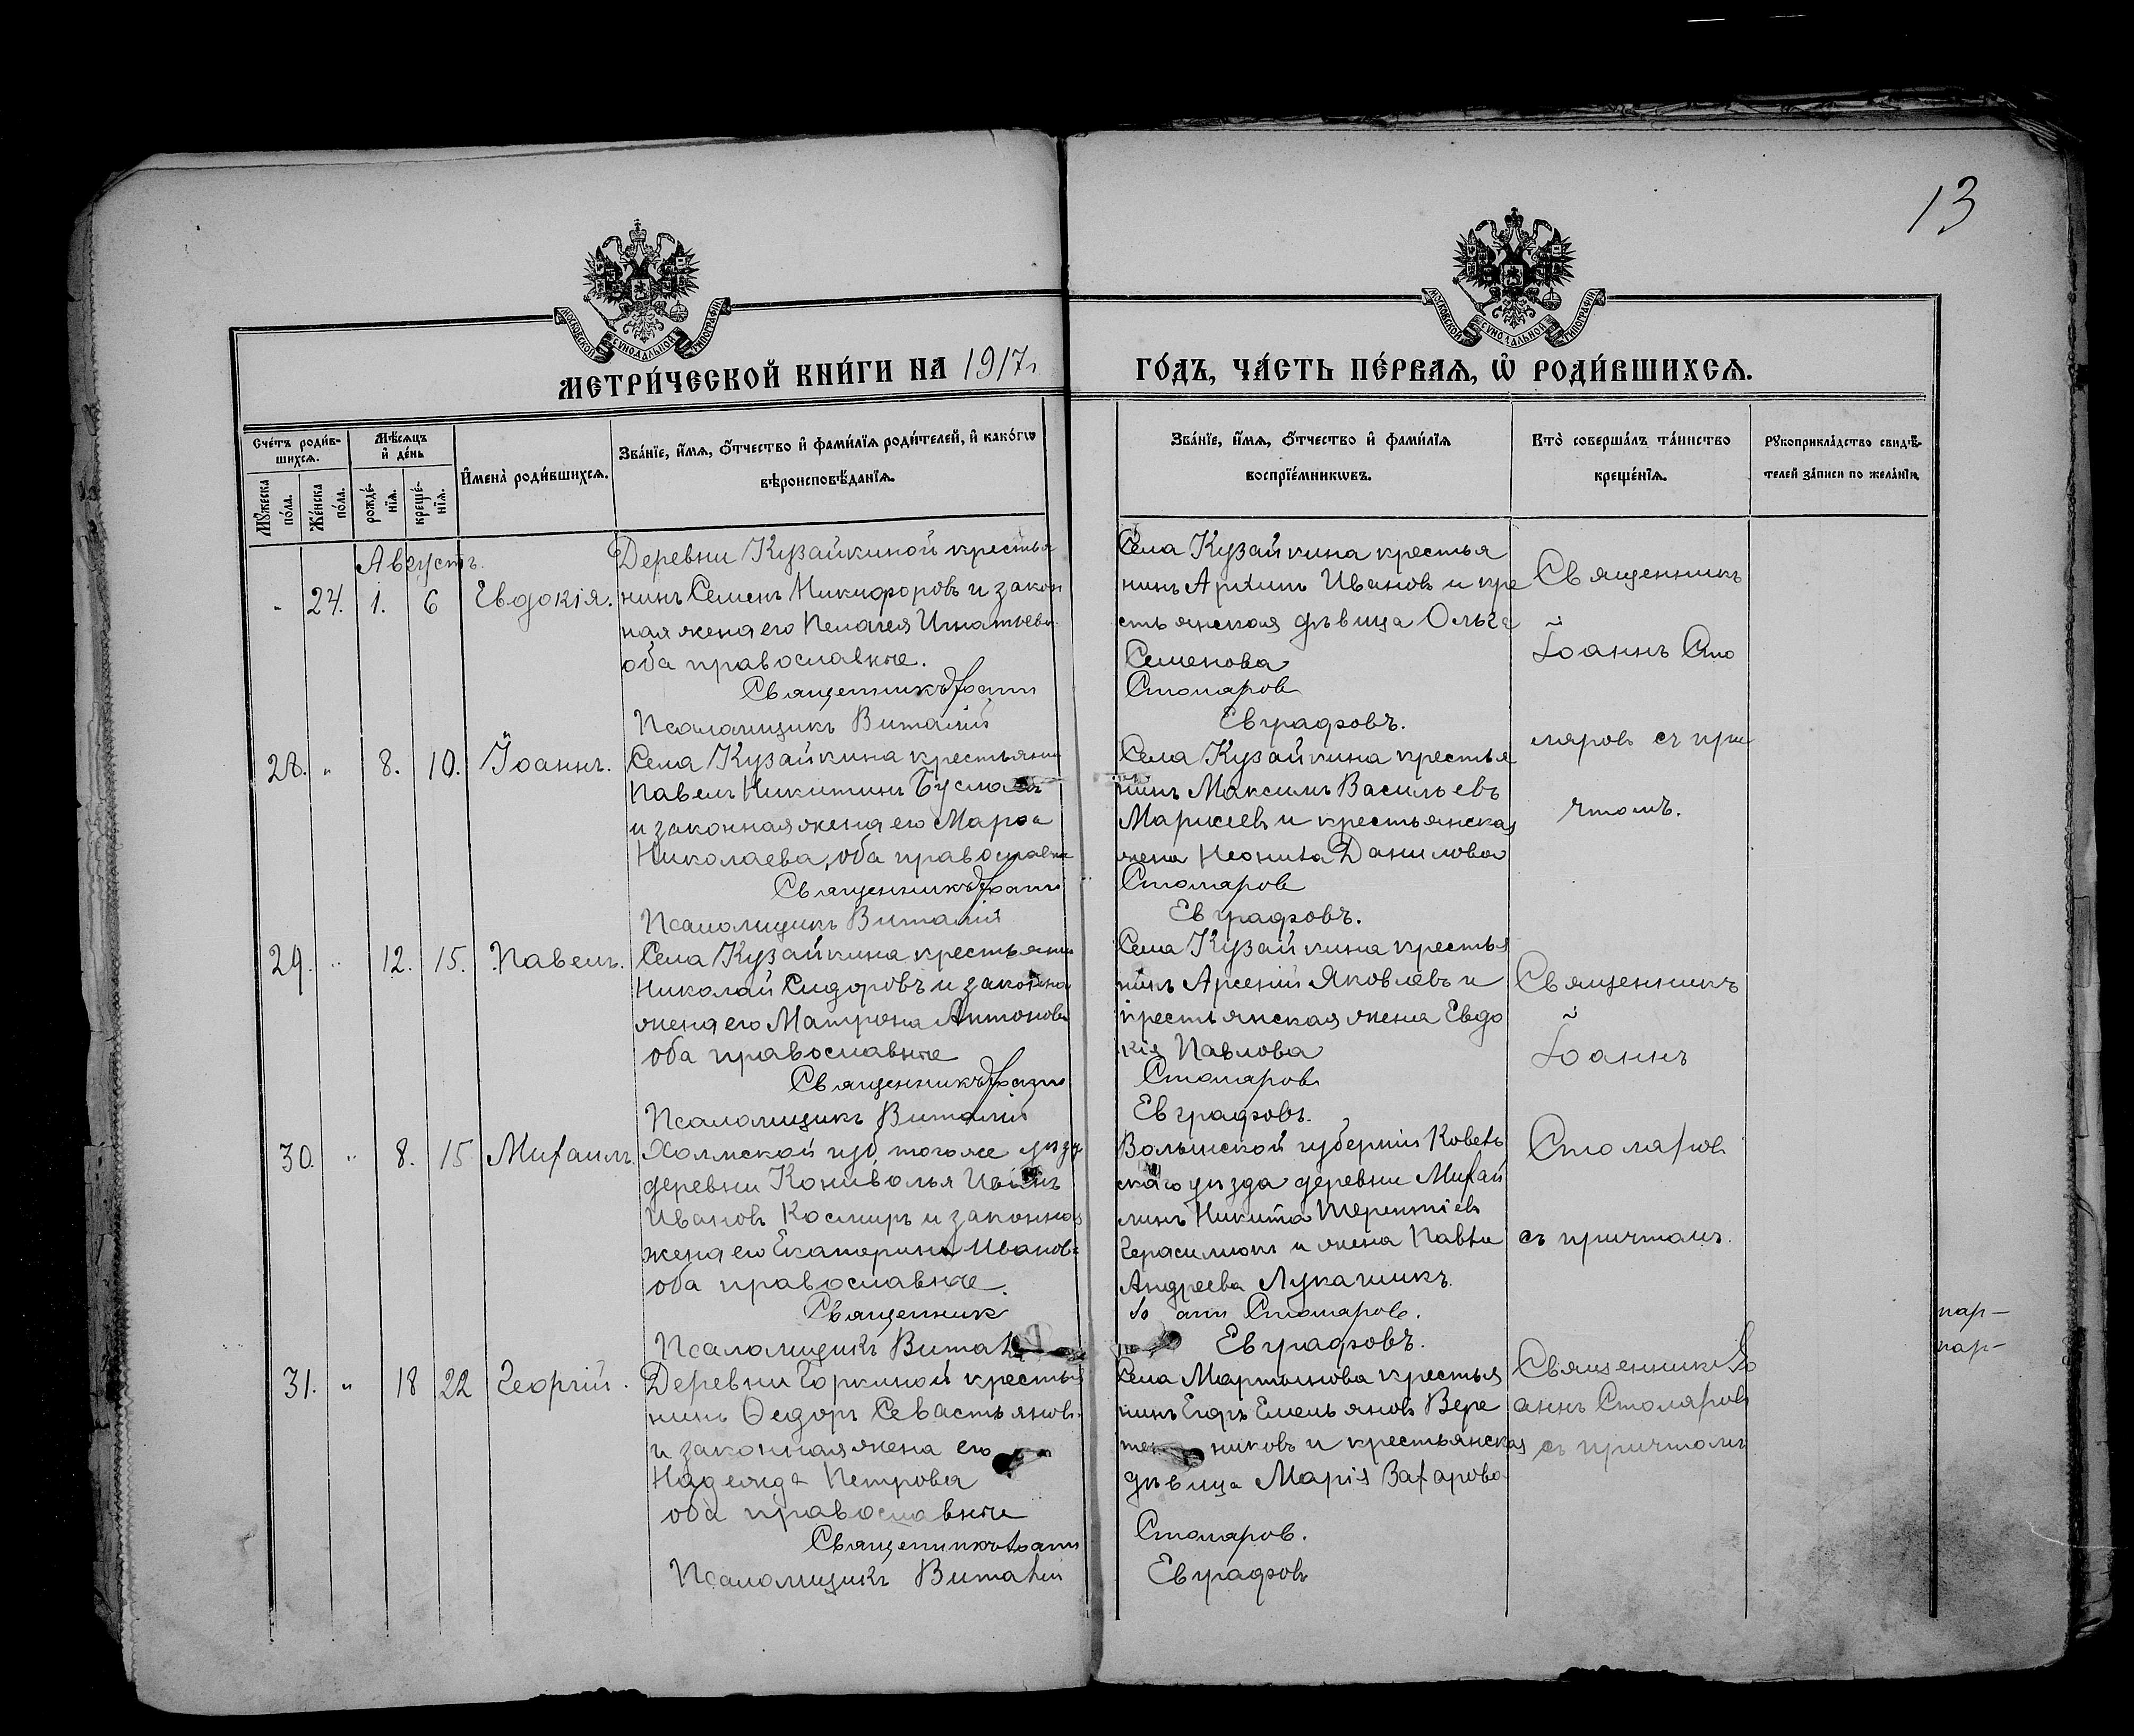 13
МОСКОВСКОЙ СѴНОДАЛЬНОЙ ТИПОГРАФІИ
МОСКОВСКОЙ СѴНОДАЛЬНОЙ ТИПОГРАФІИ
МЕТРИ́ЧЕСКОЙ КНИ́ГИ НА 1917 г. ГО́ДЪ, ЧА́СТЬ ПЕ́РВАѦ, Ѡ҆ РОДИ́ВШИХСѦ.
Сче́тъ роди́в-
шихсѧ.
Мꙋ́жеска
по́ла.
Же́нска
по́ла.
Мѣ́сѧцъ
и҆ де́нь
рожде́-
нїѧ.
креще́-
нїѧ.
И҆мена̀ роди́вшихсѧ.
Зва́нїе, и҆́мѧ, ѻ҆́тчество и҆ фами́лїѧ роди́телей, и҆ како́гѡ
вѣроисповѣ́данїѧ.
Зва́нїе, и҆́мѧ, ѻ҆́тчество и҆ фами́лїѧ
воспрїе́мникѡвъ.
Кто̀ соверша́лъ та́инство
креще́нїѧ.
Рꙋкоприкла́дство свидѣ́-
телей за́писи по жела́нїю.
Августъ.
- 24. 1. 6 Евдокія.
Деревни Кузайкиной крестья
нинъ Семенъ Никифоровъ и закон
ная жена его Пелагея Игнатьева
оба православные.
Священникъ Іоаннъ
Псаломщикъ Виталій
Села Кузайкина крестья
нинъ Иванов и кре
стьянская дѣвица Ольга
Семенова
Столяровъ
Евграфовъ.
Священникъ
Іоаннъ Сто
ляровъ съ при
чтомъ.
28. " 8. 10. Іоаннъ.
Села Кузайкина крестьянин
Павелъ Никитинъ
и законная жена его Марѳа
Николаева, оба православные
Священникъ Іоаннъ
Псаломщикъ Виталій
Села Кузайкина крестья
нинъ Максимъ Васильевъ
и крестьянская
жена Данилова
Столяровъ
Евграфовъ.
29. " 12. 15. Павелъ.
Села Кузайкина крестьянин
Николай Сидоровъ и законная
жена его Матрона Антонова
оба православные
Священникъ Іоаннъ
Псаломщикъ Виталій
Села Кузайкина крестья
нинъ Арсеній Яковлевъ и
крестьянская жена Евдо
кія Павлова
Столяровъ
Евграфовъ.
Священникъ
Іоаннъ
Столяровъ
съ причтомъ.
30. " 8. 15 Михаилъ.
Холмской губ. того же уѣзда
деревни
Ивановъ и законная
жена его Екатерина Иванова
оба православные.
Священник
Псаломщикъ Виталій
Волынской губерніи Ковель
скаго уѣзда деревни Михай
линъ Никита Терентіевъ
Герасимюкъ и жена
Андреева
Іоаннъ Столяровъ.
Евграфовъ.
пар-
пар-
31. " 18 22 Георгій.
Деревни Горкиной крестья
нинъ Ѳедоръ Севастьяновъ
и законная жена его
Надежда Петрова
оба православные
Священникъ Іоаннъ
Псаломщикъ Виталій
Села Мартынова крестья
нинъ Егоръ Емельяновъ Вере
тенниковъ и крестьянская
дѣвица Марія Захарова
Столяровъ.
Евграфовъ
Священникъ Іо
аннъ Столяровъ
съ причтомъ